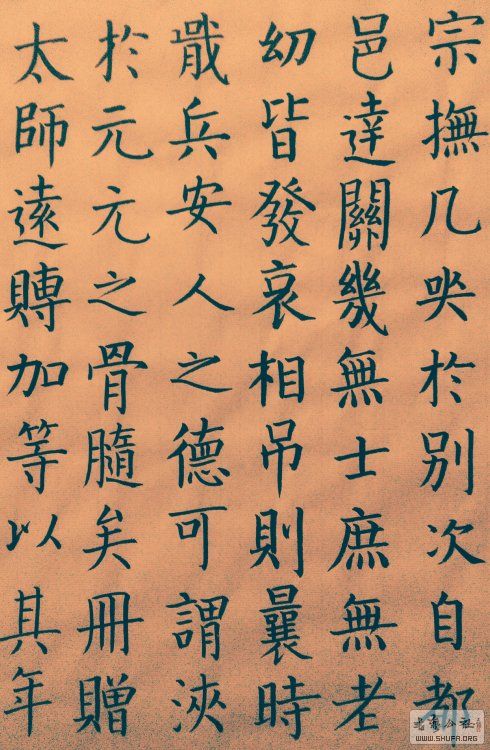 宗撫几哭於別次自都
邑達關幾無士庶無老
幼皆發哀相吊則曩時
戢兵安人之德可謂浹
於元元之骨髓矣冊贈
太師遠賻加等以其年
书艺公社
WWW.SHUFA.ORG